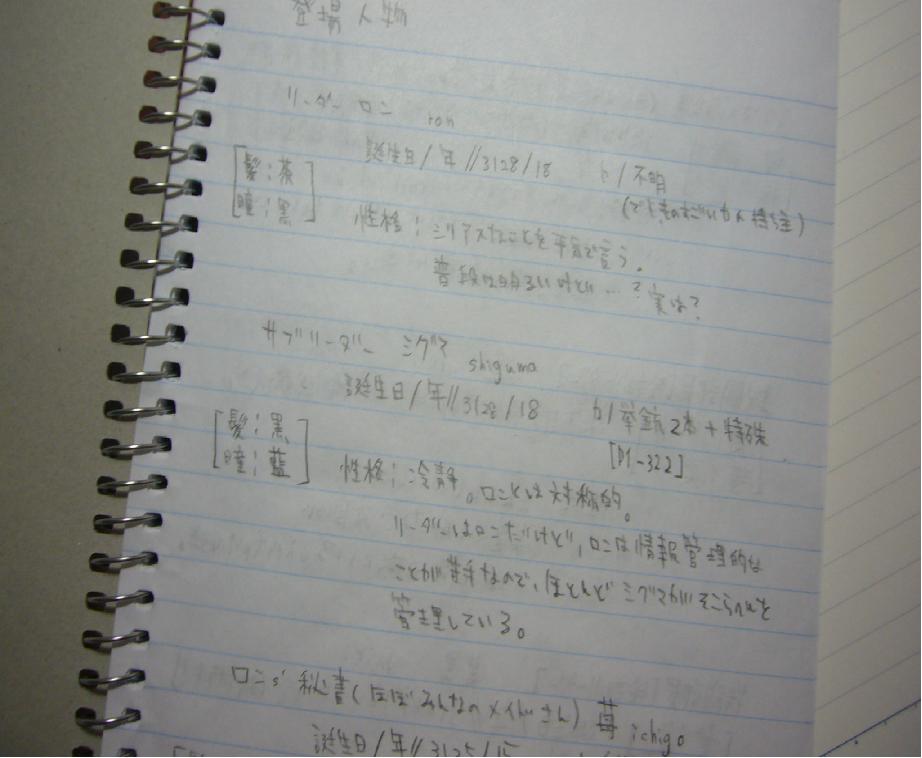 登場人物
リーダー ロン ron
誕生日/年//3128/18 カ/不明
[髪:茶
(でもものすごい力の持ち主)
瞳:黒]
性格:シリアスなことを平気で言う。
普段は明るいけど…?実は?
サブリーダー シグマ shiguma
誕生日/年//3128/18 カ/拳銃2本+特殊
[髪:黒
[D1-322]
瞳:藍]
性格:冷静。ロンとは対称的。
リーダーはロンだけど、ロンは情報管理的な
ことが苦手なので、ほとんどシグマがそこらへんを
管理している。
ロンs' 秘書(ほぼみんなのメイドさん) 苺 ichigo
誕生日/年//3125/15